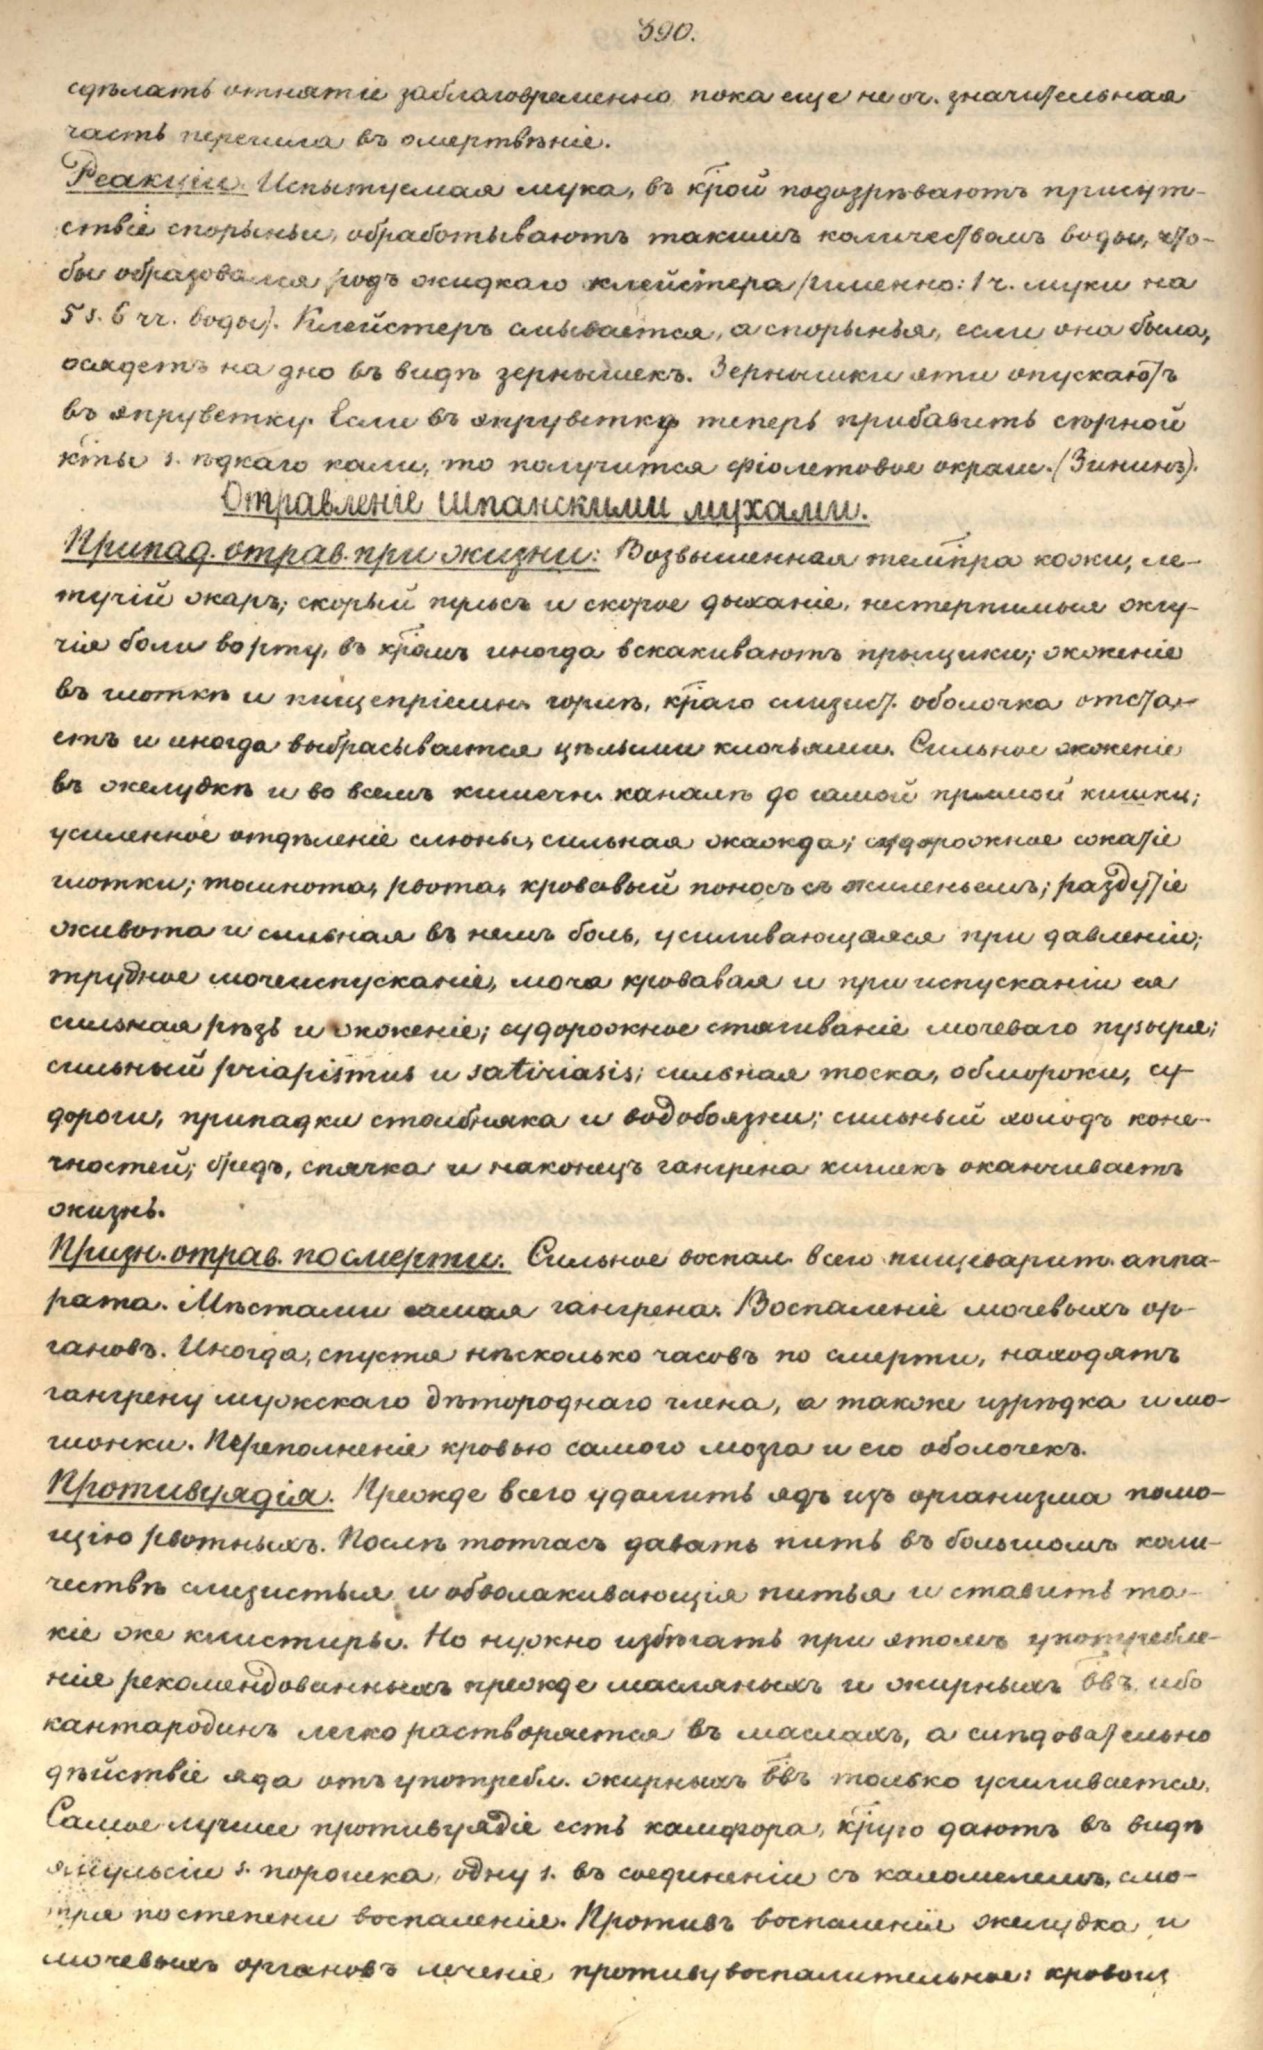 390.
сдѣлать отнятіе заблаговременно пока еще не оч. значительная
часть перешла въ омертвѣніе.
Реакціи. Испытуемая мука, въ крой подозрѣваютъ присут-
ствіе спорыньи, обработываютъ такимъ количествомъ воды, что-
бы образовался родъ жидкаго клейстера /именно: 1 ч. муки на
5 s. 6 чч. воды/. Клейстеръ смывается, а спорынья, если она была,
осядетъ на дно въ видѣ зернышекъ. Зернышки эти опускаютъ
въ эпруветку. Если въ эпруветку теперь прибавить сѣрной
кты s. ѣдкаго кали, то получится фіолетовое окраш. (Зининъ).
Отравленіе шпанскими мухами.
Припад. отрав. при жизни: Возвышенная темпра кожи, ле-
тучій жаръ; скорый пульсъ и скорое дыханіе, нестерпимыя жгу-
чія боли во рту, въ кромъ иногда вскакиваютъ прыщики; жженіе
въ глоткѣ и пищепріемн. горлѣ, краго слизист. оболочка отста-
етъ и иногда выбрасывается цѣлыми клочьями. Сильное жженіе
въ желудкѣ и во всемъ кишечн. каналѣ до самой прямой кишки;
усиленное отдѣленіе слюны, сильная жажда; судорожное сжатіе
глотки; тошнота, рвота, кровавый поносъ съ жиленьемъ; раздутіе
живота и сильная въ немъ боль, усиливающаяся при давленіи;
трудное мочеиспусканіе, моча кровавая и при испусканіи ея
сильная рѣзь и жженіе; судорожное стягиваніе мочеваго пузыря;
сильный priapismus и satiriasis; сильная тоска, обмороки, су-
дороги, припадки столбняка и водобоязни; сильный холодъ коне-
чностей; бредъ, спячка и наконецъ гангрена кишекъ оканчиваетъ
жизнь.
Призн. отрав. по смерти. Сильное воспал. всего пищеварит. аппа-
рата. Мѣстами самая гангрена. Воспаленіе мочевыхъ ор-
гановъ. Иногда, спустя нѣсколько часовъ по смерти, находятъ
гангрену мужскаго дѣтороднаго члена, а также изрѣдка и мо-
шонки. Переполненіе кровью самого мозга и его оболочекъ.
Противуядія. Прежде всего удалить ядъ изъ организма помо-
щію рвотныхъ. Послѣ тотчасъ давать пить въ большомъ коли-
чествѣ слизистыя и обволакивающія питья и ставить та-
кіе же клистиры. Но нужно избѣгать при этомъ употребле-
нія рекомендованныхъ прежде масляныхъ и жирныхъ ввъ, ибо
кантародинъ легко растворяется въ маслахъ, а слѣдовательно
дѣйствіе яда отъ употребл. жирныхъ ввъ только усиливается.
Самое лучшее противуядіе есть камфора, круго даютъ въ видѣ
эмульсіи s. порошка, одну s. въ соединеніи съ каломелемъ, смо-
тря по степени воспаленія. Противъ воспаленія желудка и
мочевыхъ органовъ леченіе противувоспалительное: кровоиз